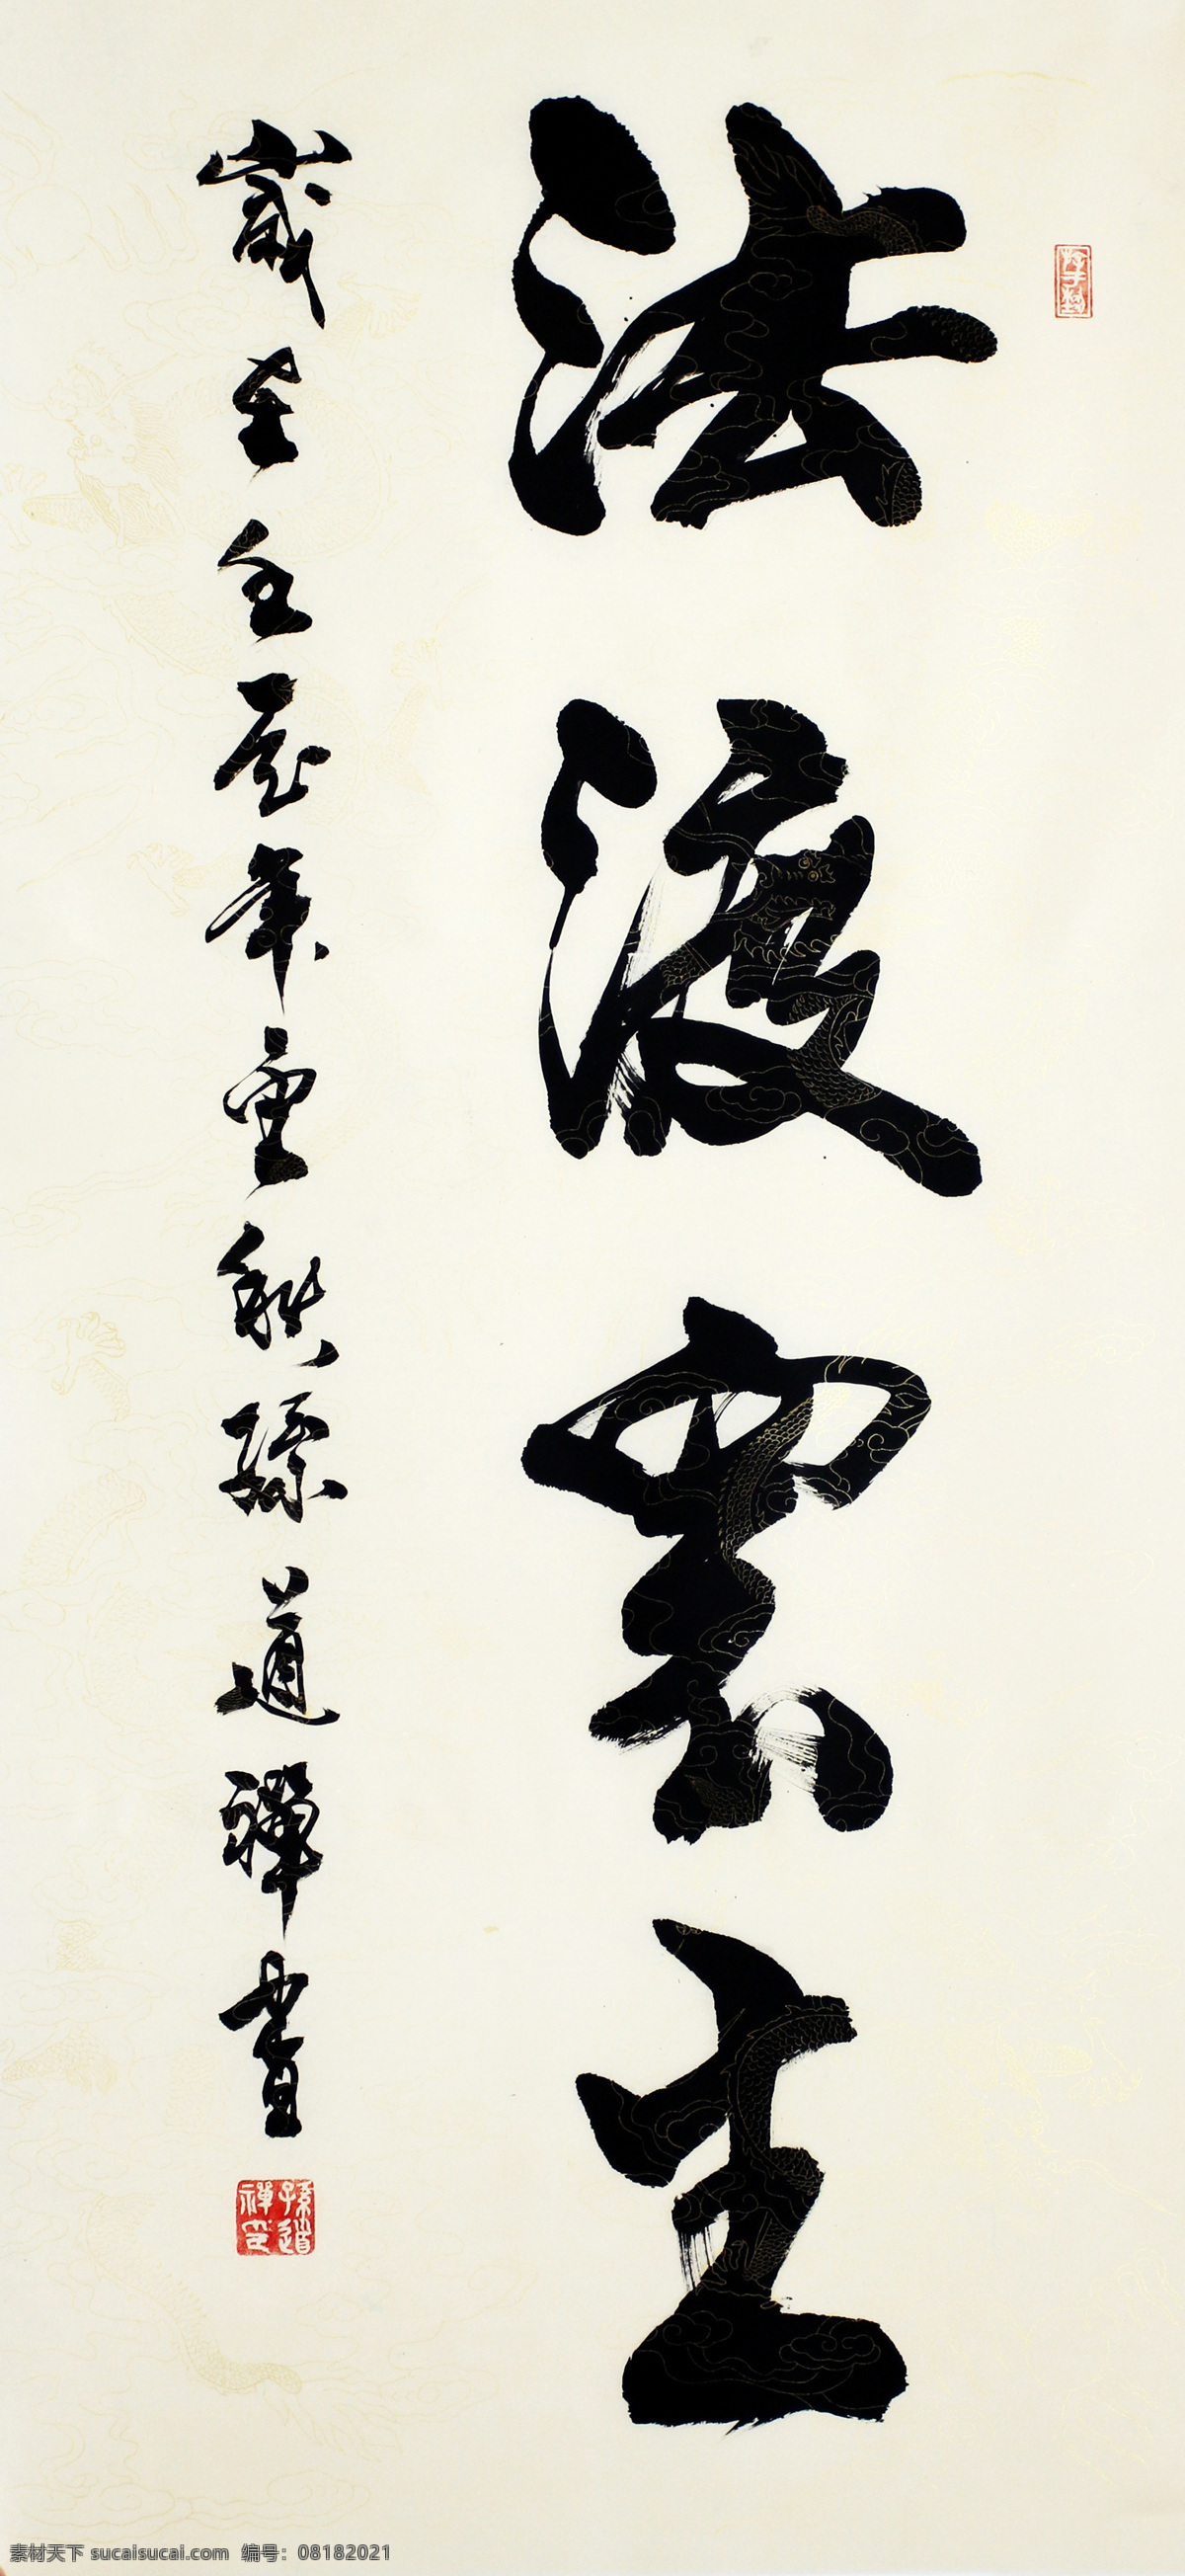 法渡衆生
歲在壬辰年重秋孫道禪書
孫道禪印
素材天下 sucaisucai.com 编号：08182021